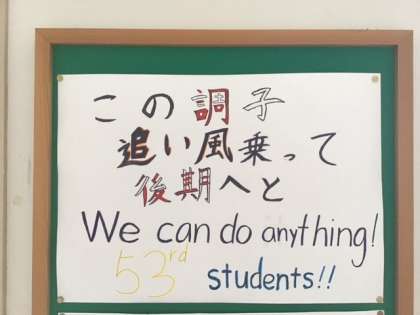 この調子
追い風乗って
後期へと
We can do anything!
53rd students!!